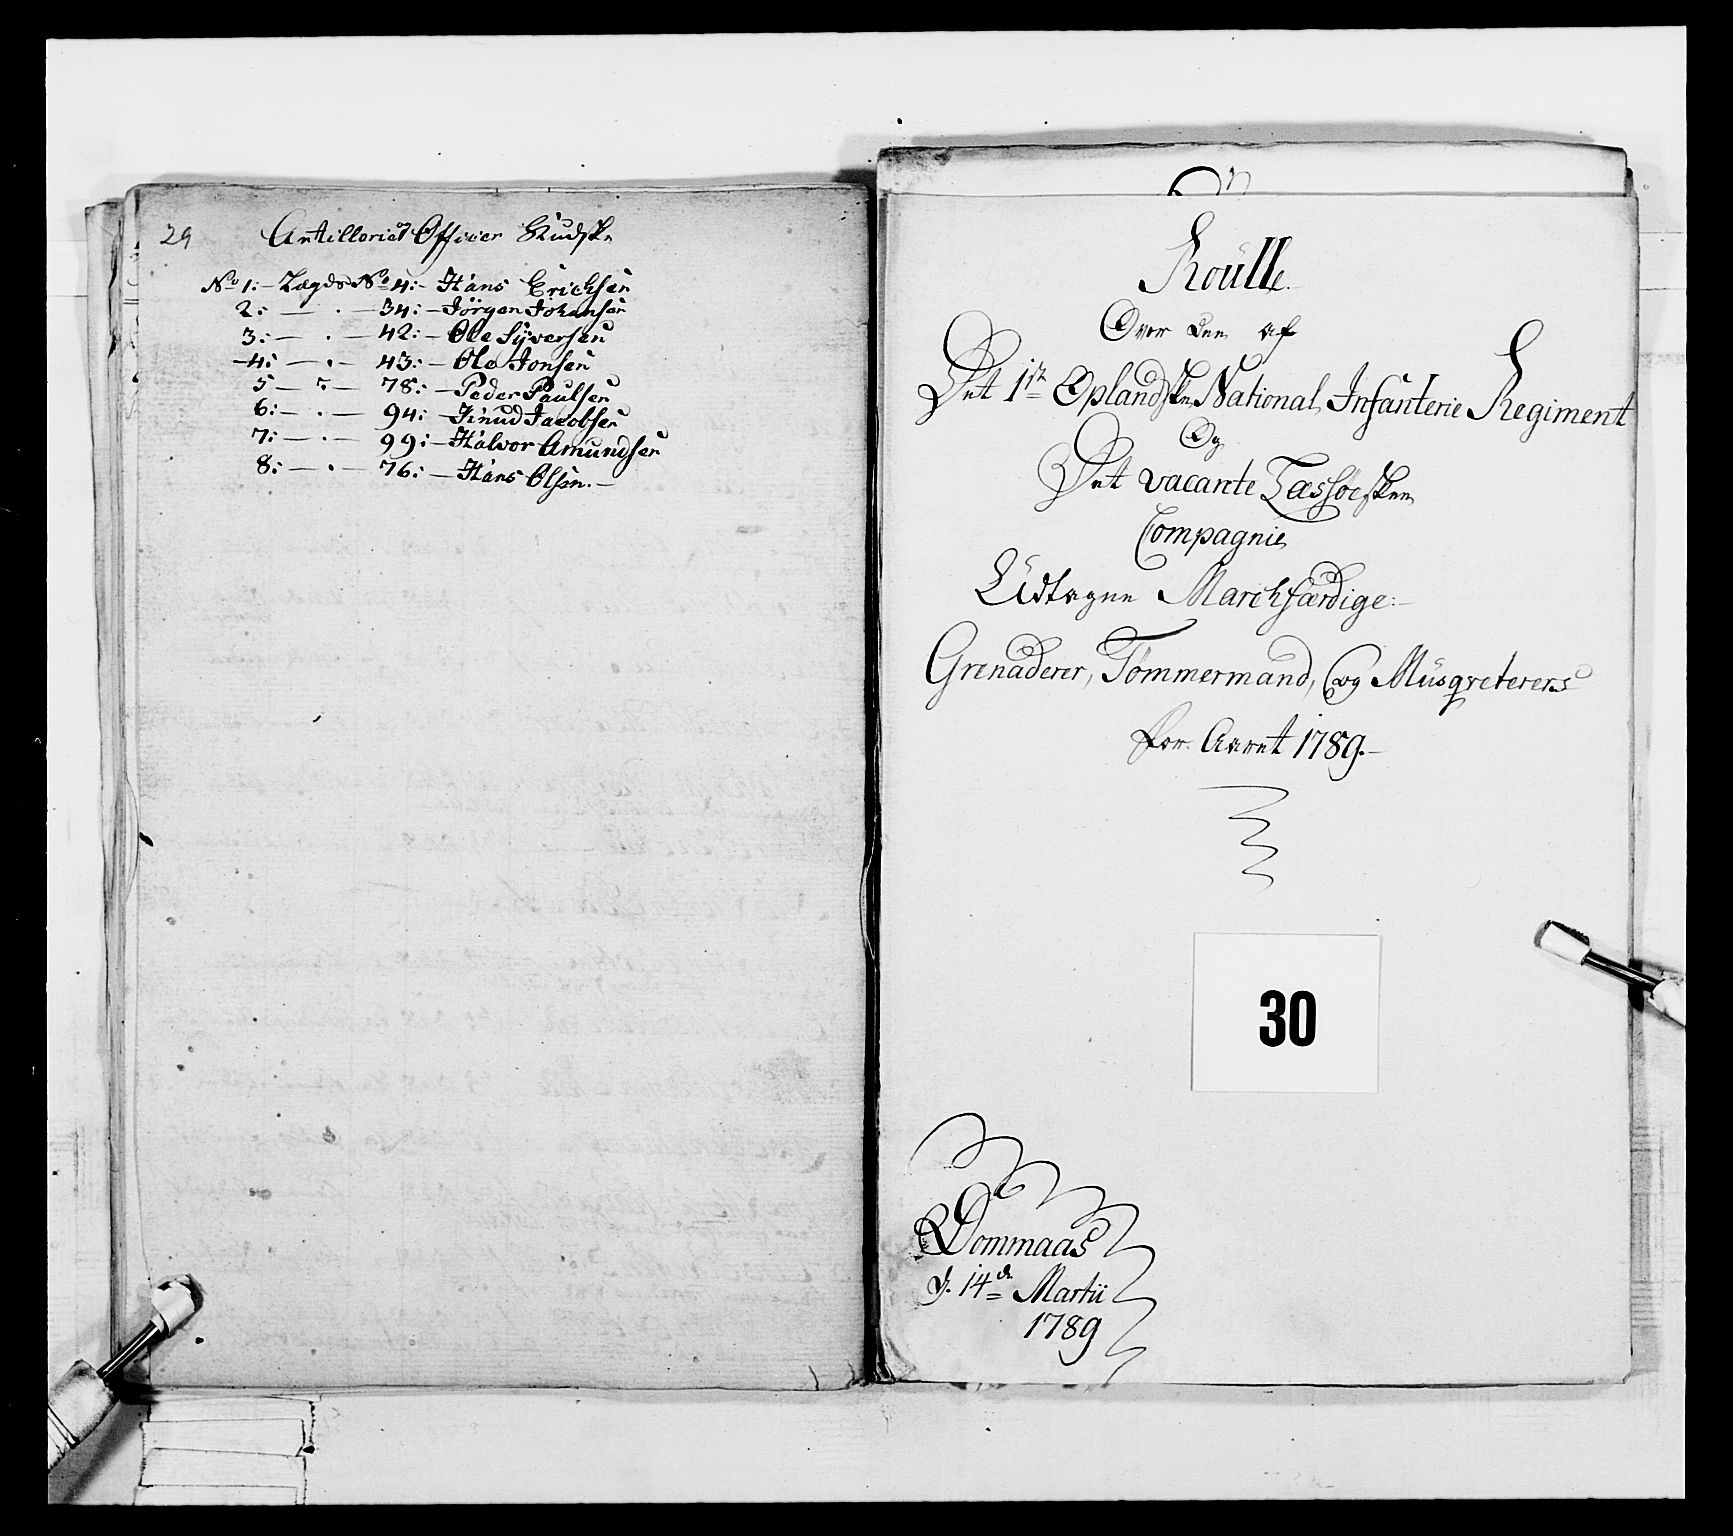 29
Artilleriet Officer Kudske
No 1:- Lægds No 4:- Hans Erichsen
2:- - . - 34:- Jörgen Johansen
3:- - . - 42:- Ole Syversen
4:- - . - 43:- Ole Jonsen
5 - . - 78:- Peder Paulsen
6:- . - 94:- Knud Jacobsen
7:- - . - 99:- Halvor Amundsen
8:- - . - 76:- Hans Olsen.-
Roulle.
Over den af
Det 1ste Oplandske National Infanterie Regiment
Og
Det vacante Læssöeske
Compagnie
Udtagne Marchfærdige:-
Grenaderer, Tömmermand, og Musqveterers
for Aaret 1789.-
30
Dommaas
d. 14de Martii
1789